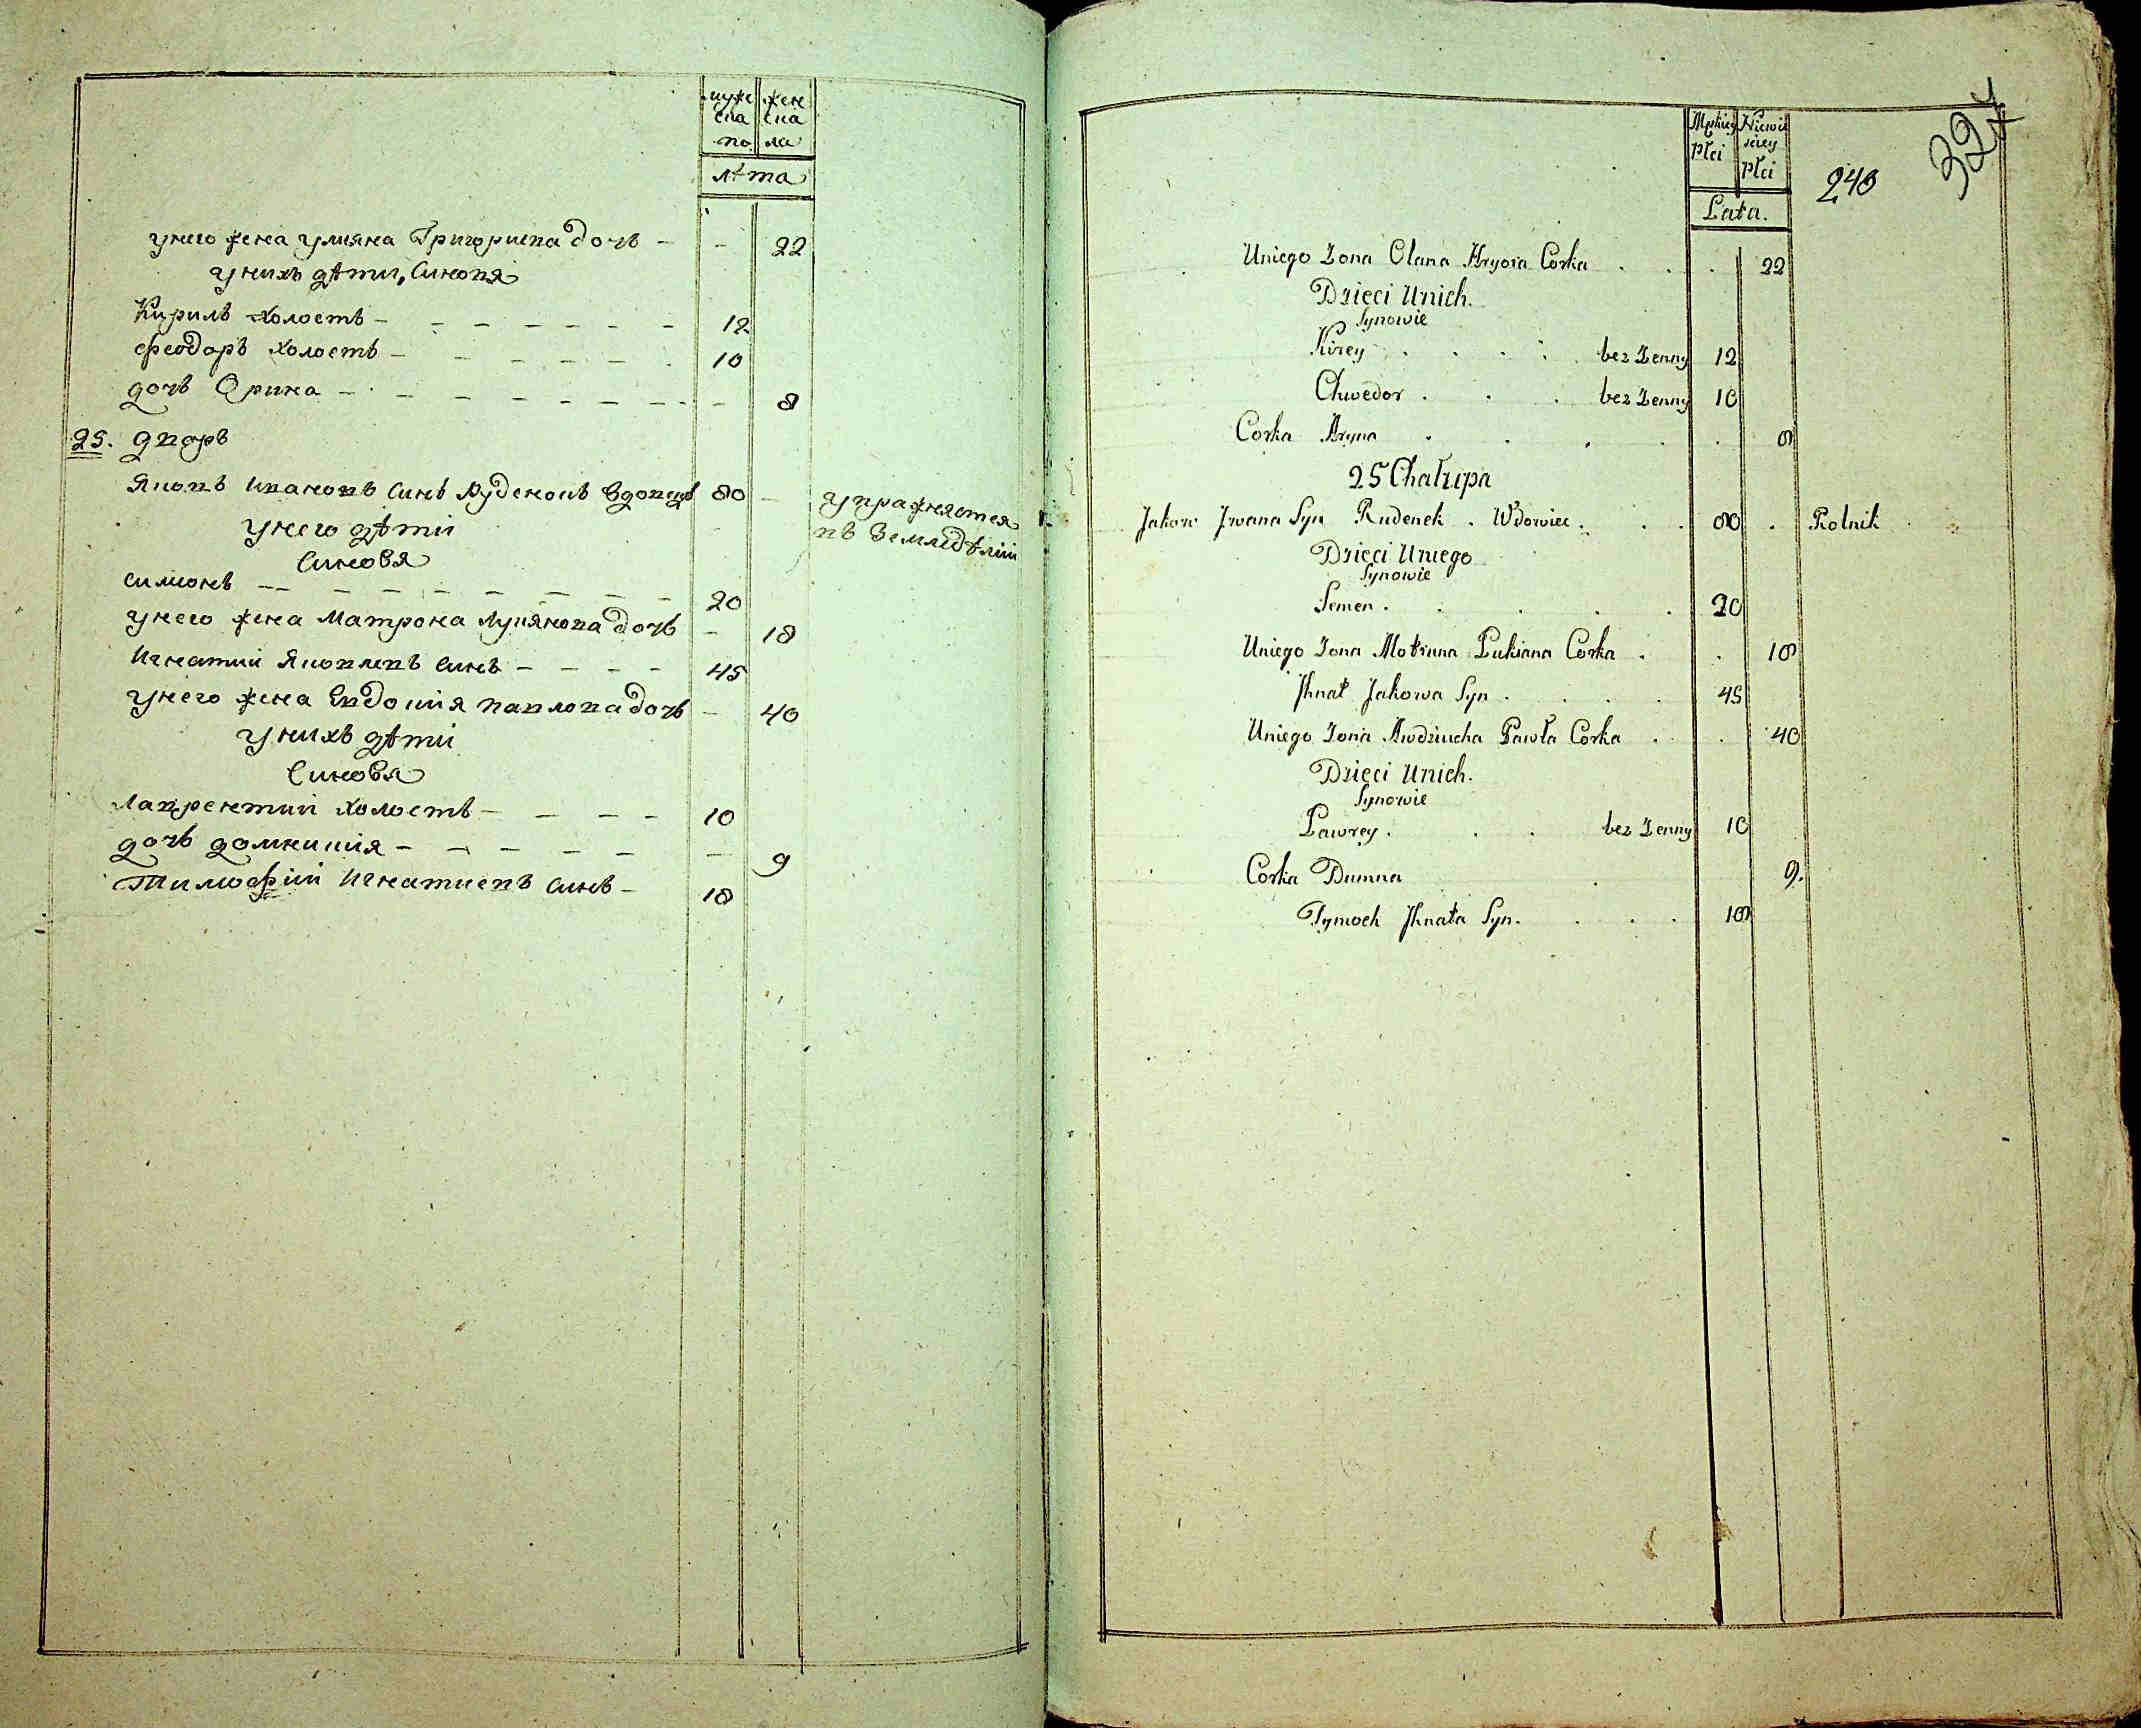 муже жен
ска ска
по ла
лѣта
унего жена улияна Григориева дочь — — 22
унихъ дѣти, Синовя
Кирилъ холостъ — 12
Феодоръ холостъ — 10
дочь Орина — — 8
25. дворъ
Яковъ Ивановъ синъ Руденокъ вдовецъ 80 — упражняется
въ земледѣлии
унего дѣти
Синовя
Симионъ — 20
унего жена Матрона Лукянова дочь — 18
Игнатий Яковлевъ синъ — 45
унего жена Евдошия Павлова дочь — 40
унихъ дѣти
Синовя
Лаврентий холостъ — 10
дочь домникия — — 9
Тимофий Игнатиевъ синъ — 18
324
Męskiey Niewie
sciey
Płci Płci
243
Lata.
Uniego Zona Olana Hryora Corka . . . 22
Dzieci Unich.
Synowie
Kirey . . . . bez Zenny 12
Chwedor . . . bez Zenny 10
Corka Aryna . . . . . . 8
25 Chałupa
Jakow Jwana Syn Rudenek . Wdowiec . . . 80 . Rolnik
Dzieci Uniego
Synowie
Semen . . . . . 20
Uniego Zona Motruna Łukiana Corka . . 18
Jhnat Jakowa Syn . . . . 45
Uniego Zona Awdziucha Pawła Corka . . 40
Dzieci Unich.
Synowie
Ławrey . . . bez Zenny 10
Corka Dumna . 9.
Tymoch Jhnata Syn. . . . 18